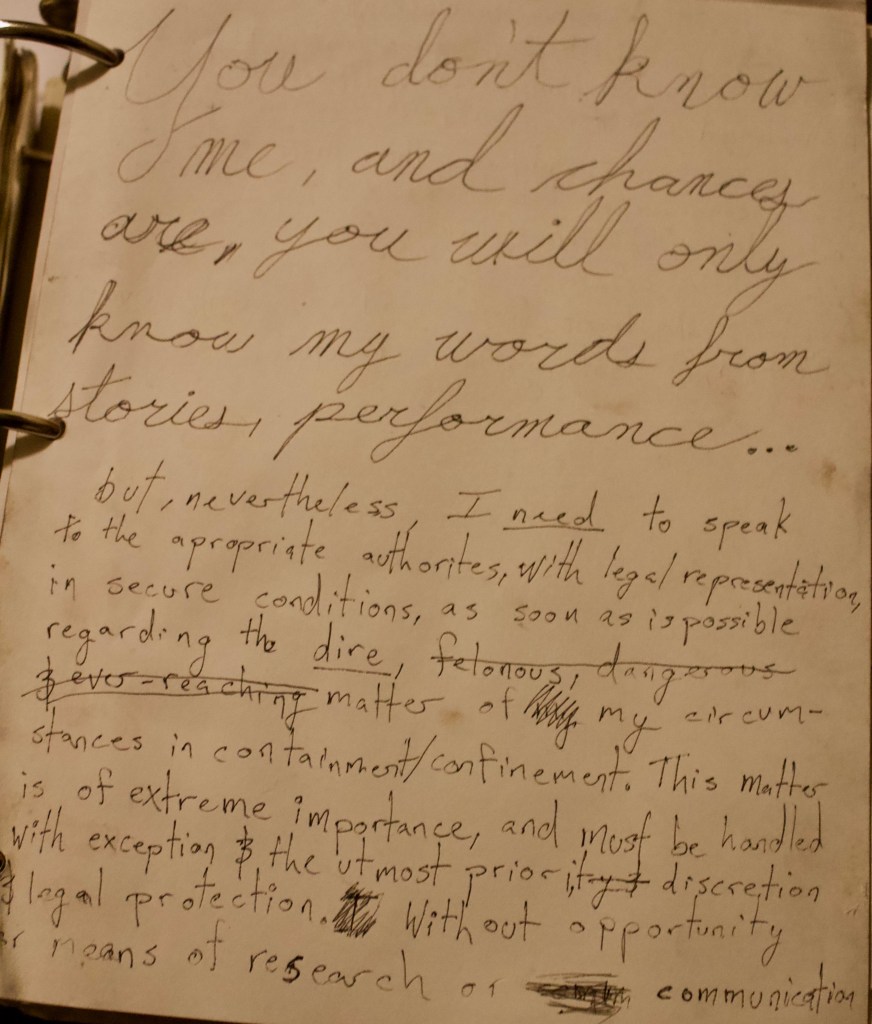 You don't know
me, and chances
are, you will only
know my words from
stories, performance...
but, nevertheless, I need to speak
to the apropriate authorites, with legal representation,
in secure conditions, as soon as is possible
regarding the dire, felonous, dangerous
& ever-reaching matter of my circum-
stances in containment/confinement. This matter
is of extreme importance, and must be handled
with exception & the utmost priority & discretion
& legal protection. Without opportunity
or means of research or communication